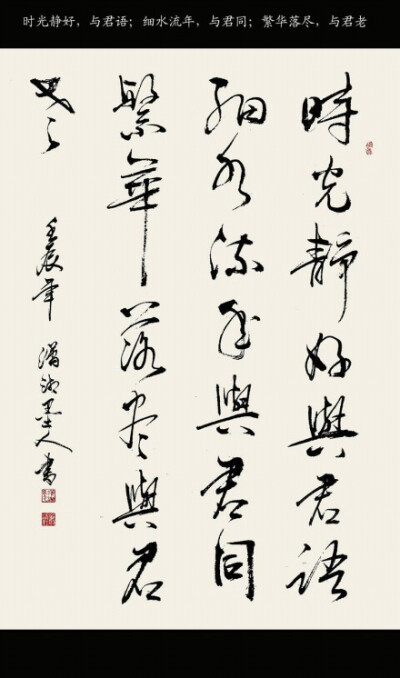 时光静好，与君语；细水流年，与君同；繁华落尽，与君老
時光靜好與君語
細水流年與君同
繁華落尽與君
老
壬辰年 瀟湘墨人書